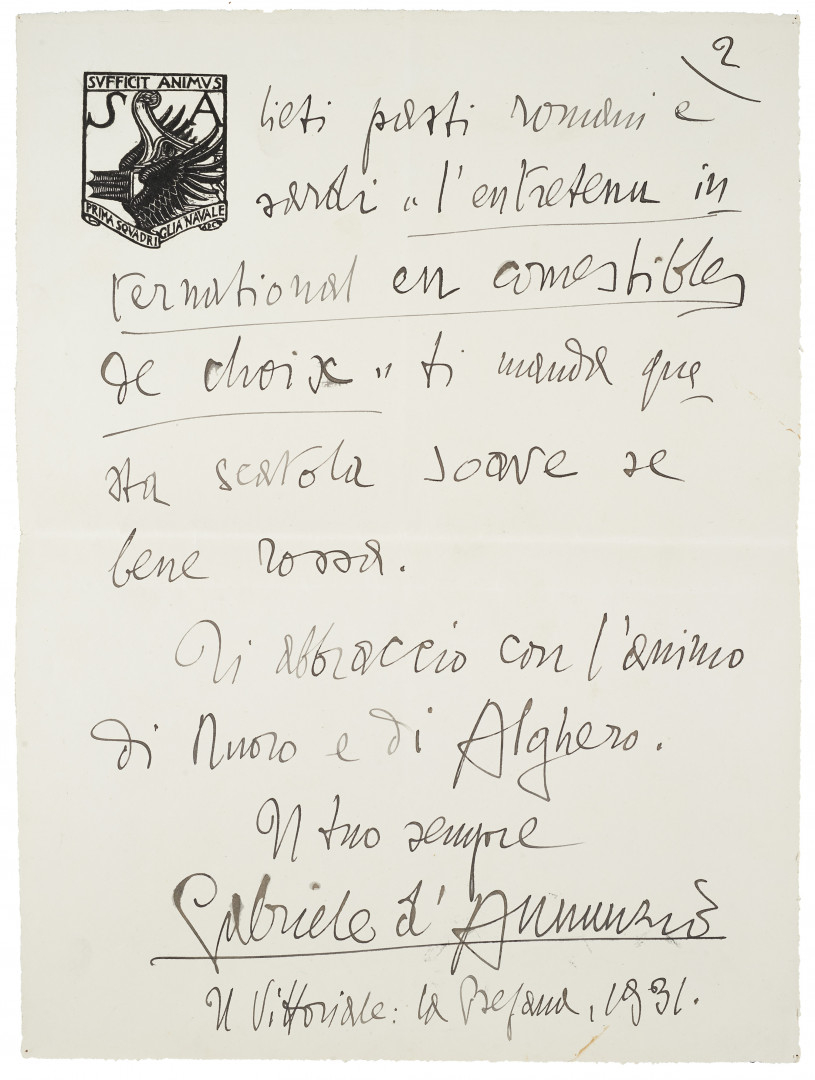 2
SVFFICIT ANIMVS
S A
PRIMA SQVADRIGLIA NAVALE
lieti pasti romani e
sardi „l'entretenu in
ternational en comestibles
de choix" ti manda que
sta scatola soave se
bene rossa.
Ti abbraccio con l'animo
di Nuoro e di Alghero.
Il tuo sempre
Gabriele d'Annunzio
Il Vittoriale: la Befana, 1931.